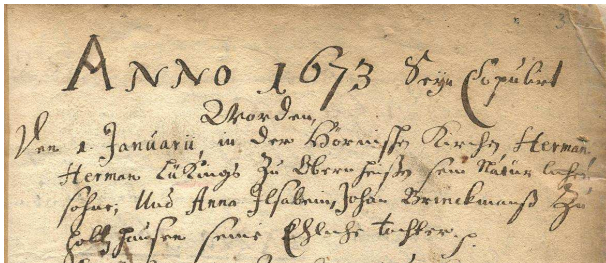 3
ANNO 1673 Seyn Copulirt
Worden,
Den 1. Januarii, in der Hörnischen Kirchen, Herman
Herman Lükings Zu Oberen sein Natür licher
sohne; Und Anna Ilsabein, Johan Brinckmanß Zu
Holtzhausen seine Ehliche tochter.